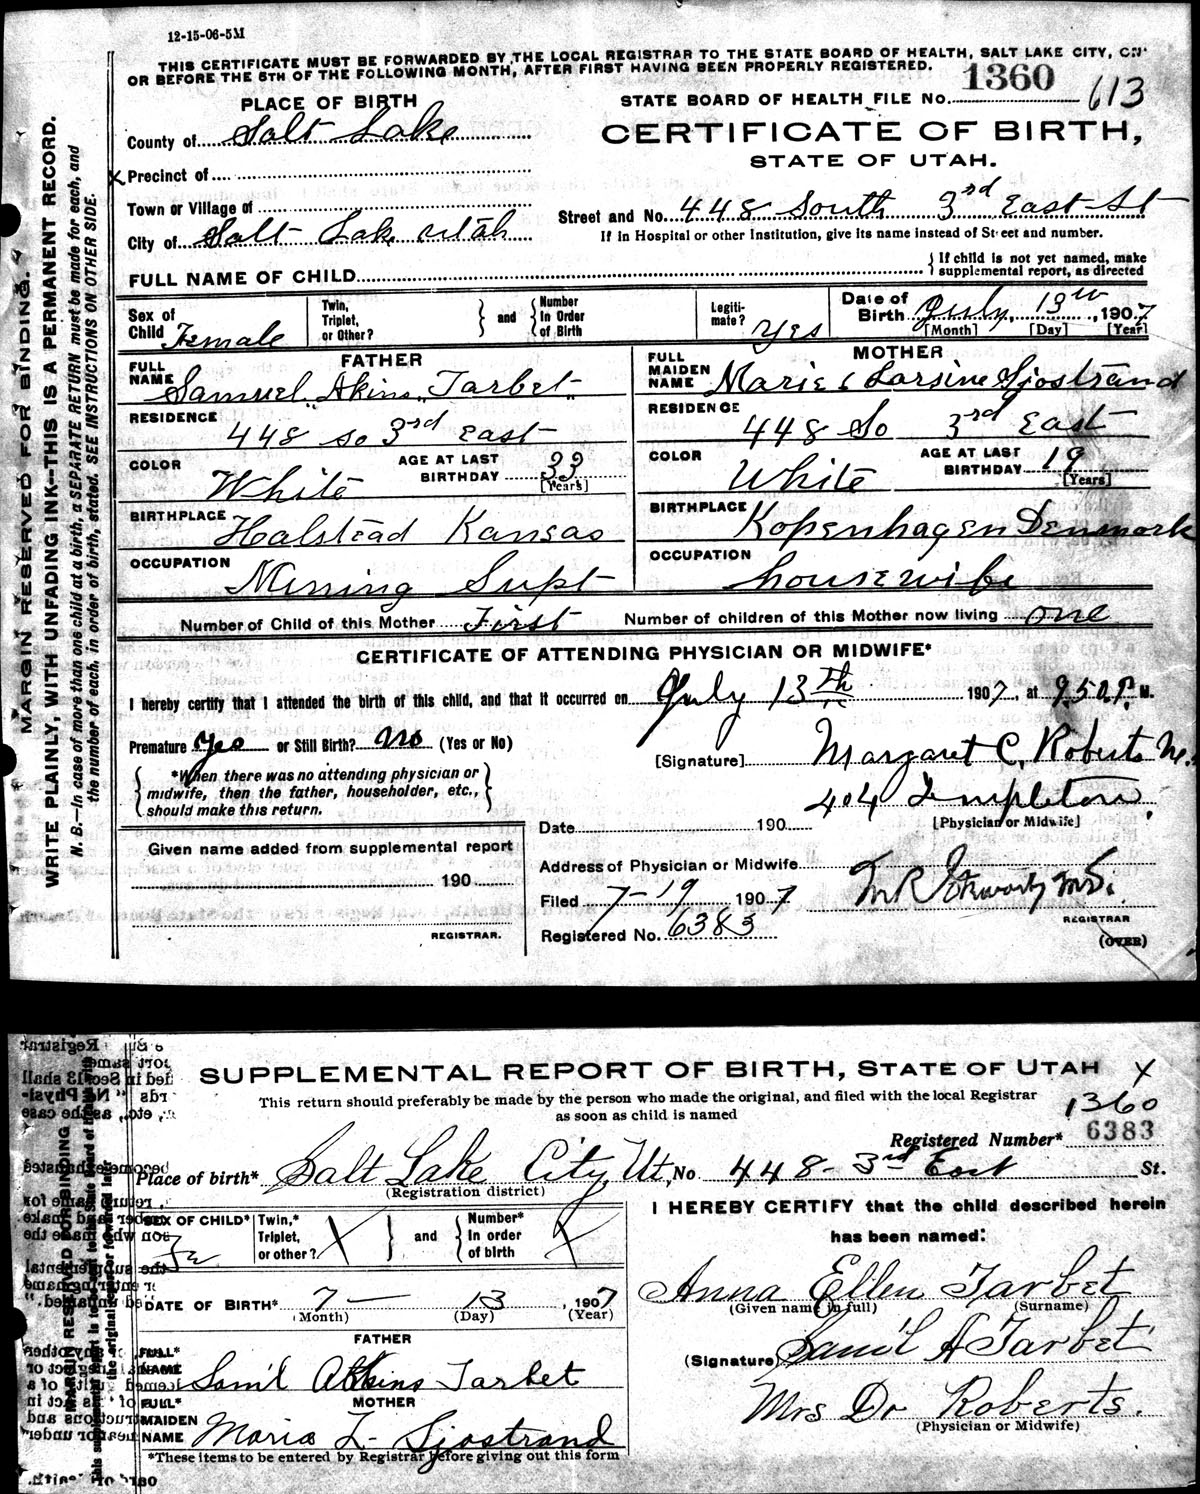 12-15-06-5M
THIS CERTIFICATE MUST BE FORWARDED BY THE LOCAL REGISTRAR TO THE STATE BOARD OF HEALTH, SALT LAKE CITY, ON
OR BEFORE THE 5TH OF THE FOLLOWING MONTH, AFTER FIRST HAVING BEEN PROPERLY REGISTERED.
MARGIN RESERVED FOR BINDING.
WRITE PLAINLY, WITH UNFADING INK—THIS IS A PERMANENT RECORD.
N. B.—In case of more than one child at a birth, a SEPARATE RETURN must be made for each, and
the number of each, in order of birth, stated. SEE INSTRUCTIONS ON OTHER SIDE.
PLACE OF BIRTH
County of Salt Lake
X Precinct of
Town or Village of
City of Salt Lake Utah
STATE BOARD OF HEALTH FILE No. 1360 613
CERTIFICATE OF BIRTH,
STATE OF UTAH.
Street and No. 448 South 3rd East St
If in Hospital or other Institution, give its name instead of Street and number.
FULL NAME OF CHILD
If child is not yet named, make
supplemental report, as directed
Sex of Child Female
Twin, Triplet, or Other?
and
Number In Order of Birth
Legitimate? Yes
Date of Birth July, 13th, 1907
[Month] [Day] [Year]
FATHER
FULL NAME Samuel "Akins" Tarbet
RESIDENCE 448 So 3rd East
COLOR White
AGE AT LAST BIRTHDAY 33
[Years]
BIRTHPLACE Halstead Kansas
OCCUPATION Mining Supt
MOTHER
FULL MAIDEN NAME Marie Larsine Sjostrand
RESIDENCE 448 So 3rd East
COLOR White
AGE AT LAST BIRTHDAY 19
[Years]
BIRTHPLACE Kopenhagen Denmark
OCCUPATION housewife
Number of Child of this Mother First
Number of children of this Mother now living one
CERTIFICATE OF ATTENDING PHYSICIAN OR MIDWIFE*
I hereby certify that I attended the birth of this child, and that it occurred on July 13th 1907, at 9.50 P. M.
Premature Yes or Still Birth? No (Yes or No)
*When there was no attending physician or
midwife, then the father, householder, etc.,
should make this return.
[Signature] Margaret C. Roberts
404 Templeton
[Physician or Midwife]
Date 190
Given name added from supplemental report
190
REGISTRAR.
Address of Physician or Midwife
Filed 7-19 1907
Registered No. 6383
REGISTRAR
(OVER)
SUPPLEMENTAL REPORT OF BIRTH, STATE OF UTAH X
This return should preferably be made by the person who made the original, and filed with the local Registrar
as soon as child is named
1360
Registered Number* 6383
Place of birth* Salt Lake City, Ut, No 448-3rd East St.
(Registration district)
SEX OF CHILD* Fe
Twin,* Triplet, or other? X
and
Number* In order of birth X
DATE OF BIRTH* 7 — 13, 1907
(Month) (Day) (Year)
FATHER
FULL* NAME Sam'l Atkins Tarbet
MOTHER
FULL* MAIDEN NAME Maria L- Sjostrand
*These items to be entered by Registrar before giving out this form
I HEREBY CERTIFY that the child described herein
has been named:
Anna Ellen Tarbet
(Given name in full) (Surname)
(Signature) Sam'l A Tarbet
Mrs Dr Roberts.
(Physician or Midwife)
MARGIN RESERVED FOR BINDING